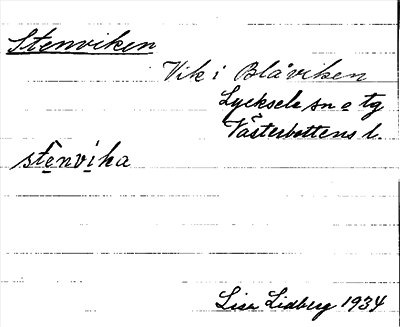 Stenviken
Vik i Blåviken
Lycksele sn o tg
Västerbottens l.
stenvika
Lisa Lidberg 1934